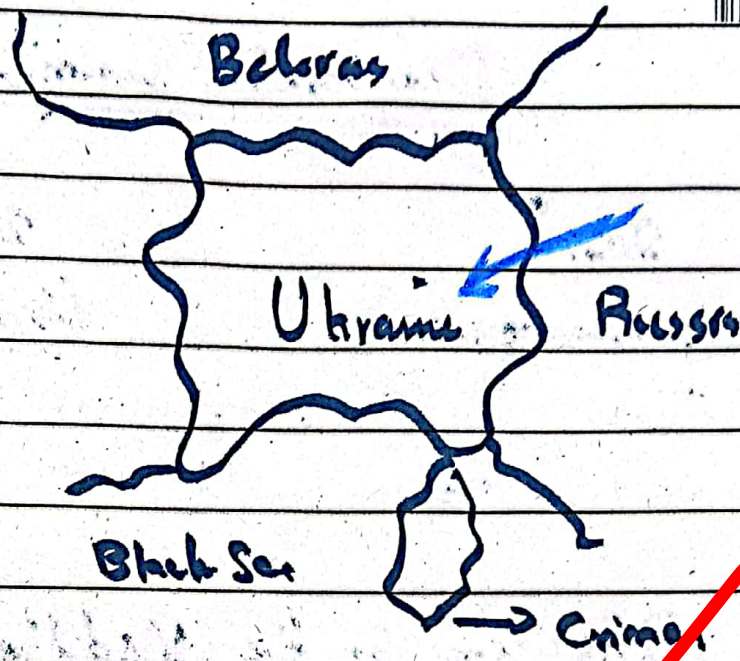 Belorus
Ukraine
Russia
Black Sea
Crimea